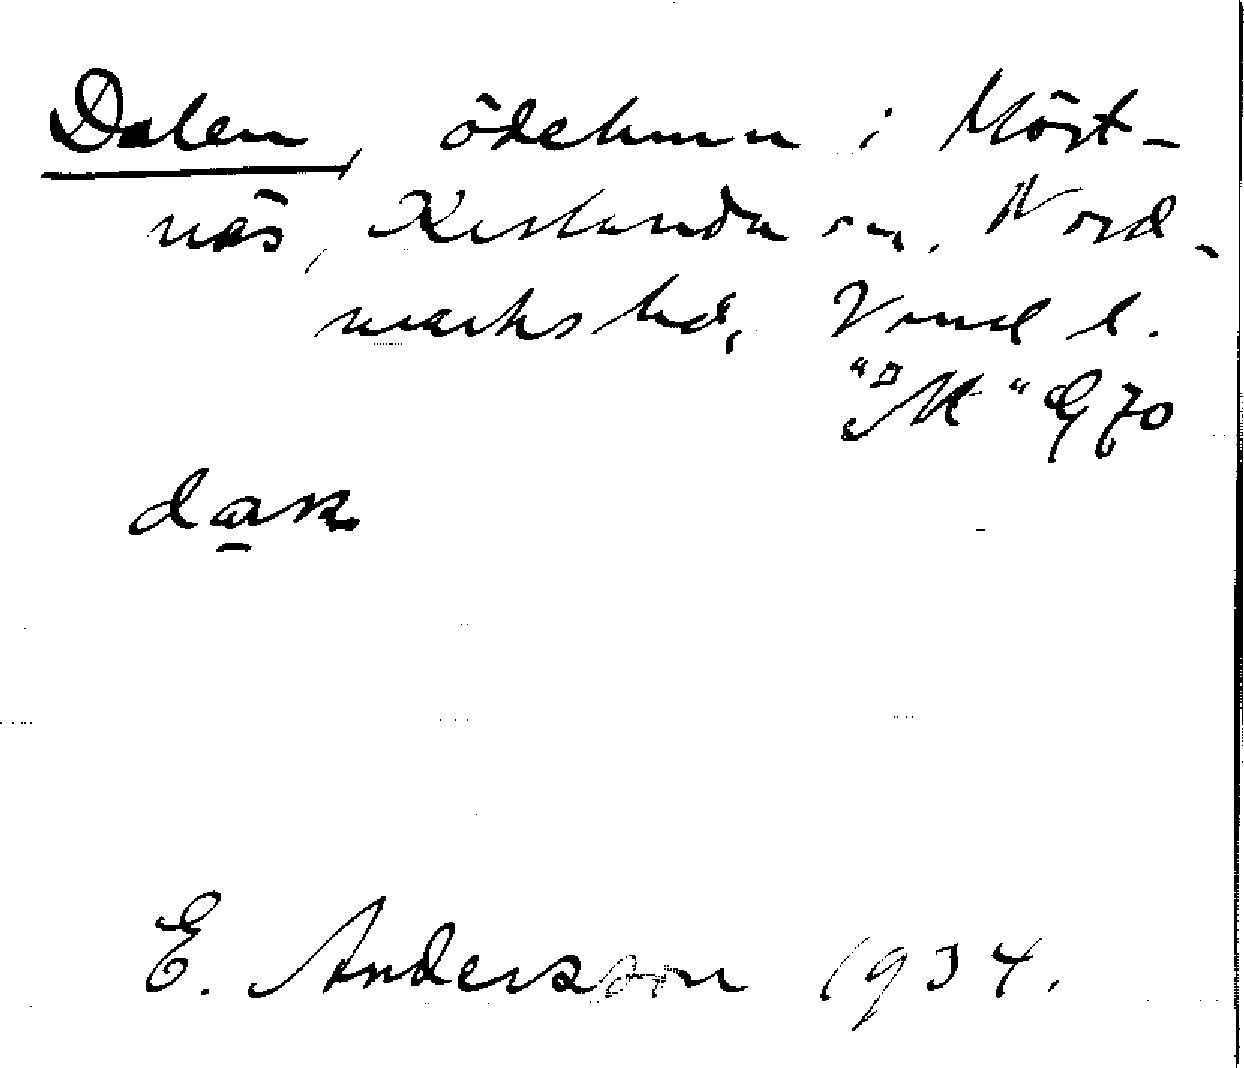 Dalen, ödehmn i Höst-
näs, Karlanda sn, Nord-
marks hd, Vrml l.
G 70
E. Andersson 1934.